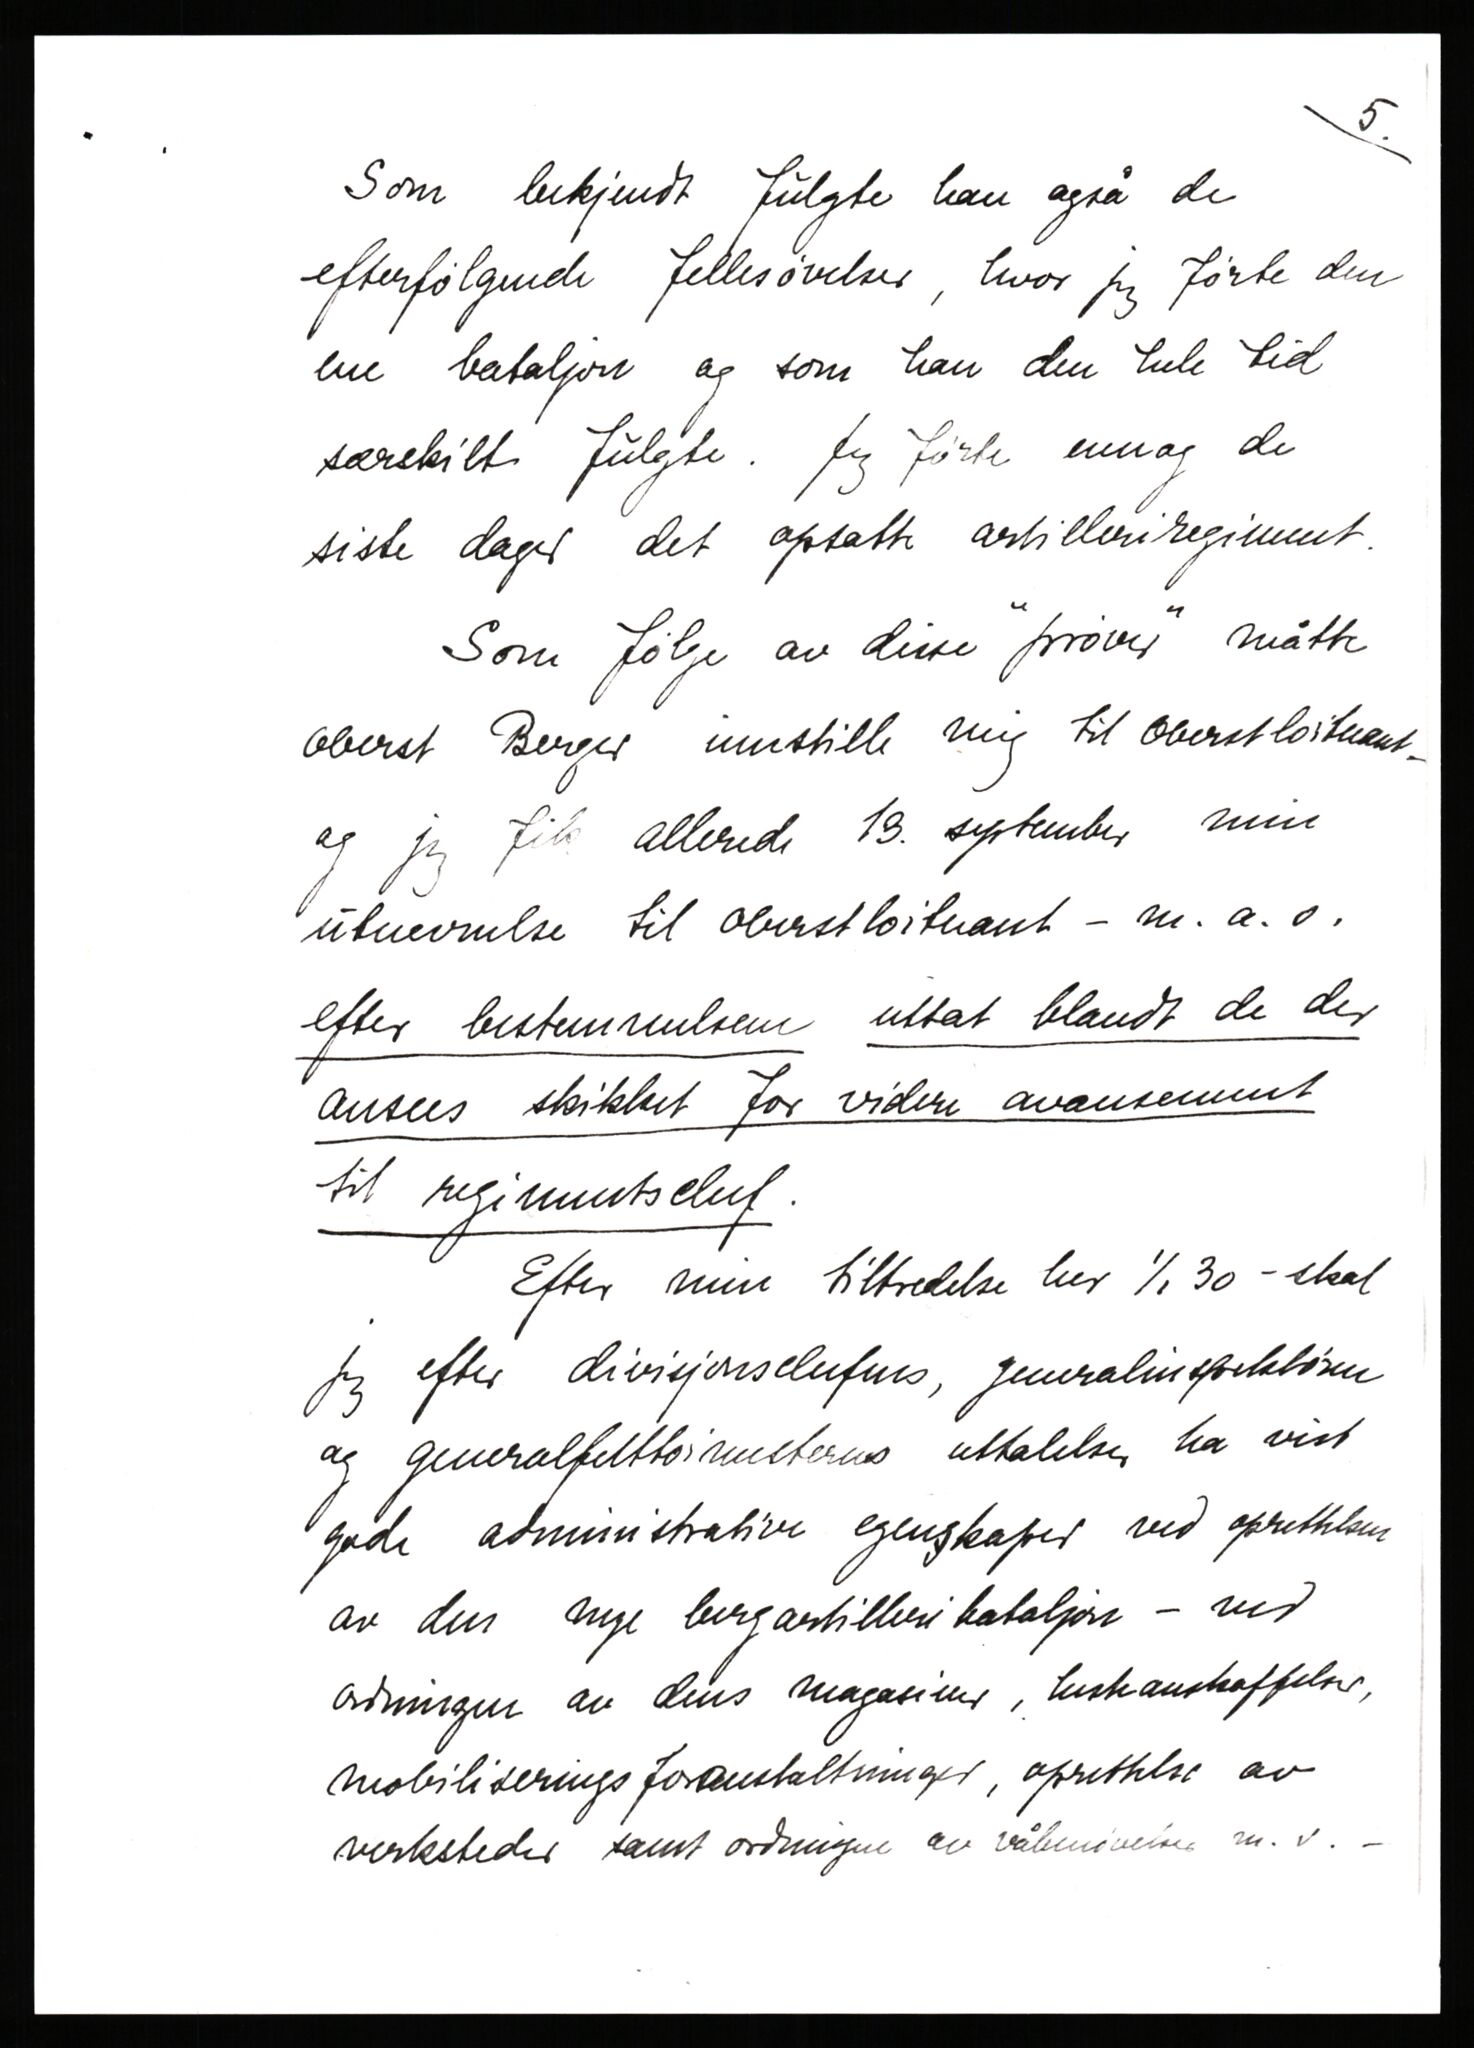 5.
Som bekjendt fulgte han også de
efterfølgende fellesøvelser, hvor jeg førte den
ene bataljon og som han den hele tid
særskilt fulgte. Jeg førte ennog de
siste dager det opsatte artilleriregiment.
Som følge av disse "prøver" måtte
oberst Berger innstille mig til oberstløitnant -
og jeg fik allerede 13. september min
utnevnelse til oberstløitnant - m. a. o.
efter bestemmelsene uttat blandt de der
ansees skikket for videre avansement
til regimentschef.
Efter min tiltredelse her 1/1 30 - skal
jeg efter divisjonschefens, generalinspektøren
og generalfelttøimesterens uttalelser ha vist
gode administrative egenskaper ved oprettelsen
av den nye bergartilleribataljon - ved
ordningen av dens magasiner, hesteanskaffelser,
mobiliseringsforanstaltninger, oprettelse av
verksteder samt ordningen av våbenøvelser m. v. -